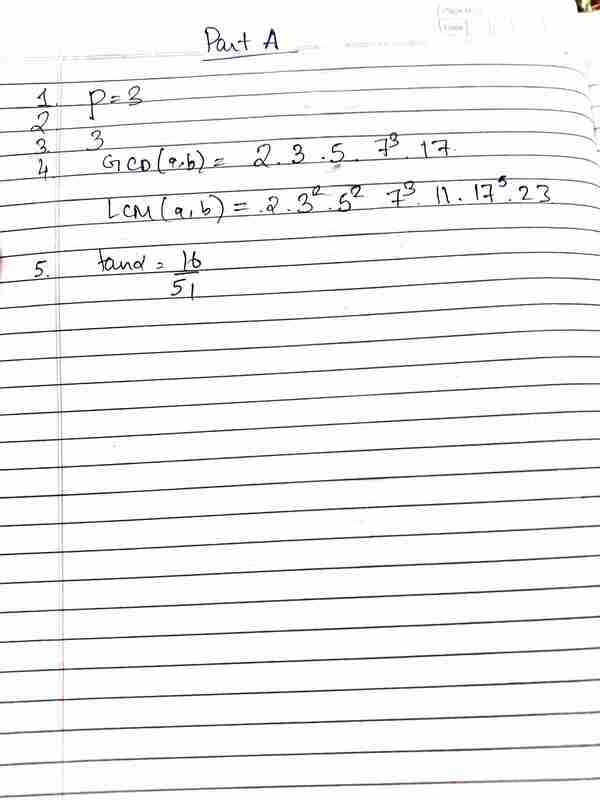 Part A
1. p=3
2
3. 3
4. GCD(a,b) = 2.3.5. 7³.17.
LCM(a,b) = .2.3².5² 7³.11.17⁵.23
5. tanα = 16/51